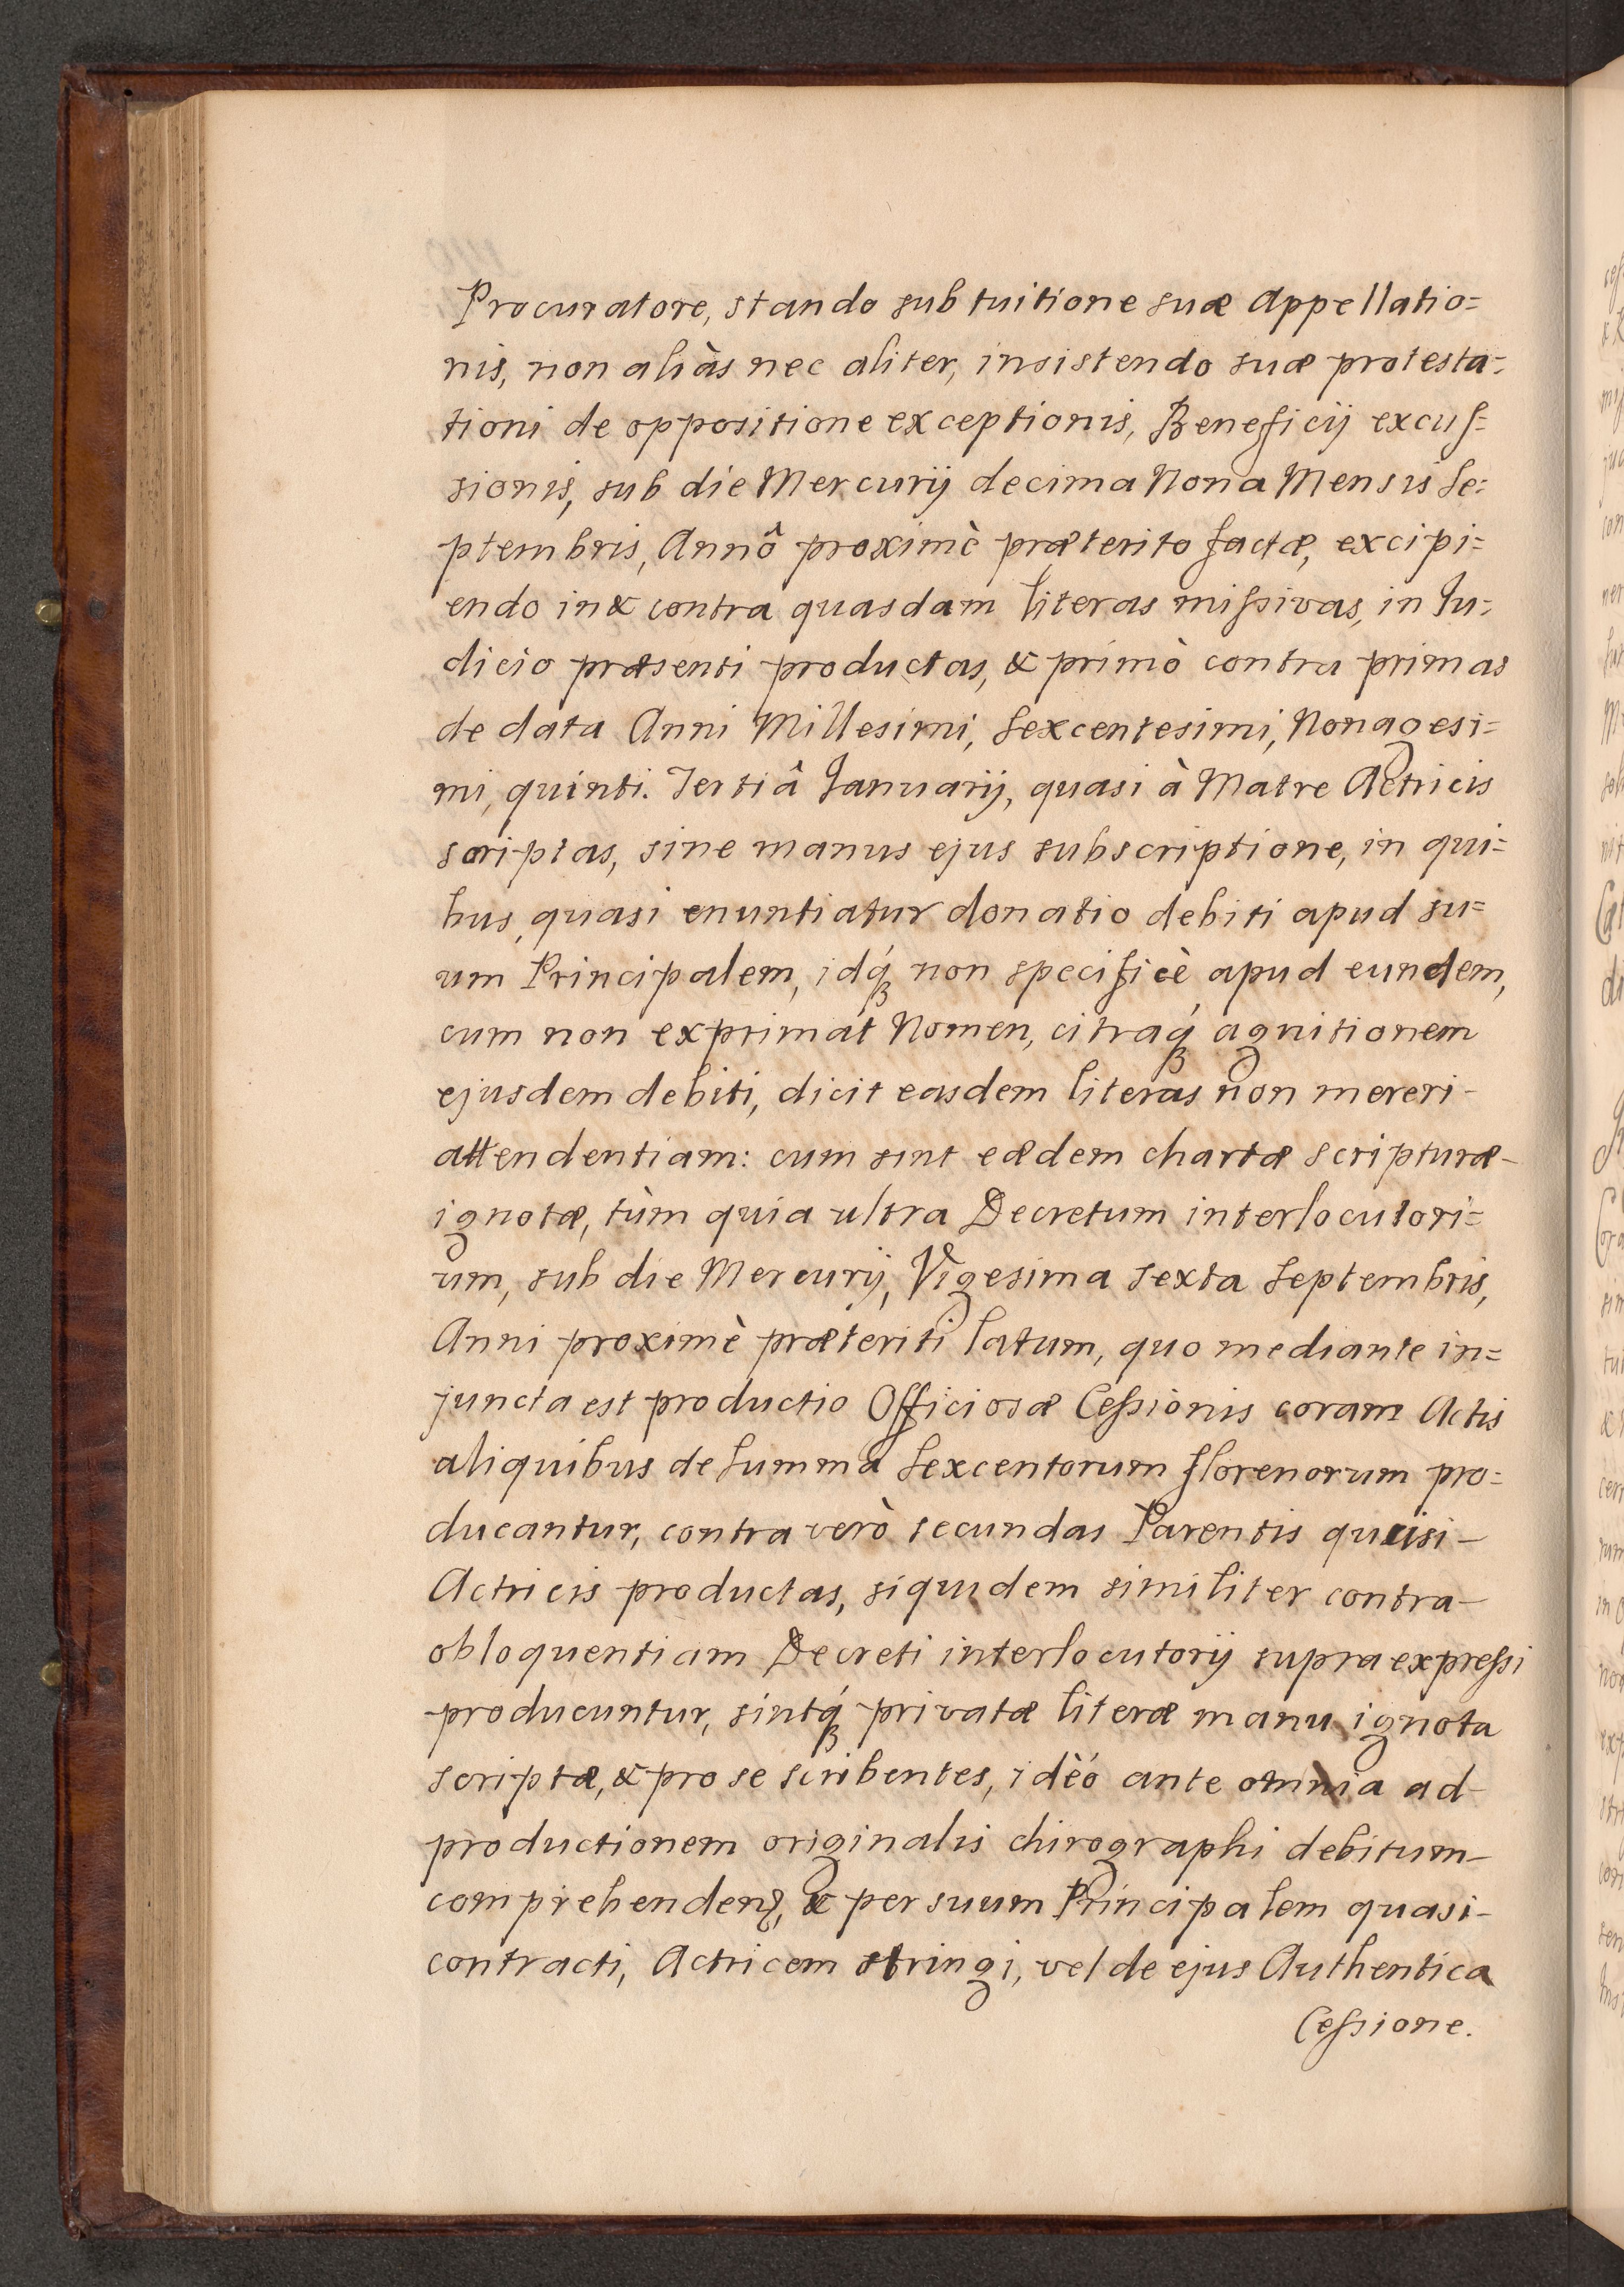 Procuratore, stando sub tuitione suæ Appellatio=
nis, non aliàs nec aliter, insistendo suæ protesta=
tioni de oppositione exceptionis, Beneficij excus=
sionis, sub die Mercurij decima Nona Mensis Se=
ptembris, Annô proximè præterito factæ, excipi=
endo in & contra quasdam literas missivas, in Ju=
dicio præsenti productas, & primò contra primas
de data Anni Millesimi, Sexcentesimi, Nonagesi=
mi, quinti. Tertiâ Januarij, quasi à Matre Actricis
scriptas, sine manus ejus subscriptione, in qui=
bus, quasi enuntiatur donatio debiti apud su=
um Principalem, idq́ꝫ non specificè apud eundem,
cum non exprimat Nomen, citraq́ꝫ agnitionem
ejusdem debiti, dicit easdem literas non mereri-
attendentiam: cum sint eædem chartæ scripturæ-
ignotæ, tùm quia ultra Decretum interlocutori=
um, sub die Mercurij, Vigesima Sexta Septembris,
Anni proximè præteriti latum, quo mediante in=
juncta est productio Officiosæ Cessionis coram Actis
aliquibus de Summa Sexcentorum florenorum pro=
ducantur, contra verò secundas Parentis quasi-
Actricis productas, siquidem similiter contra-
obloquentiam Decreti interlocutorij supra expressi
producuntur, sintq́ꝫ privatæ literæ manu ignota
scriptæ, & pro se scribentes, idèó ante omnia ad
productionem originalis chirographi debitum-
comprehenden̄, & per suum Principalem quasi-
contracti, Actricem stringi, vel de ejus Authentica
Cessione.